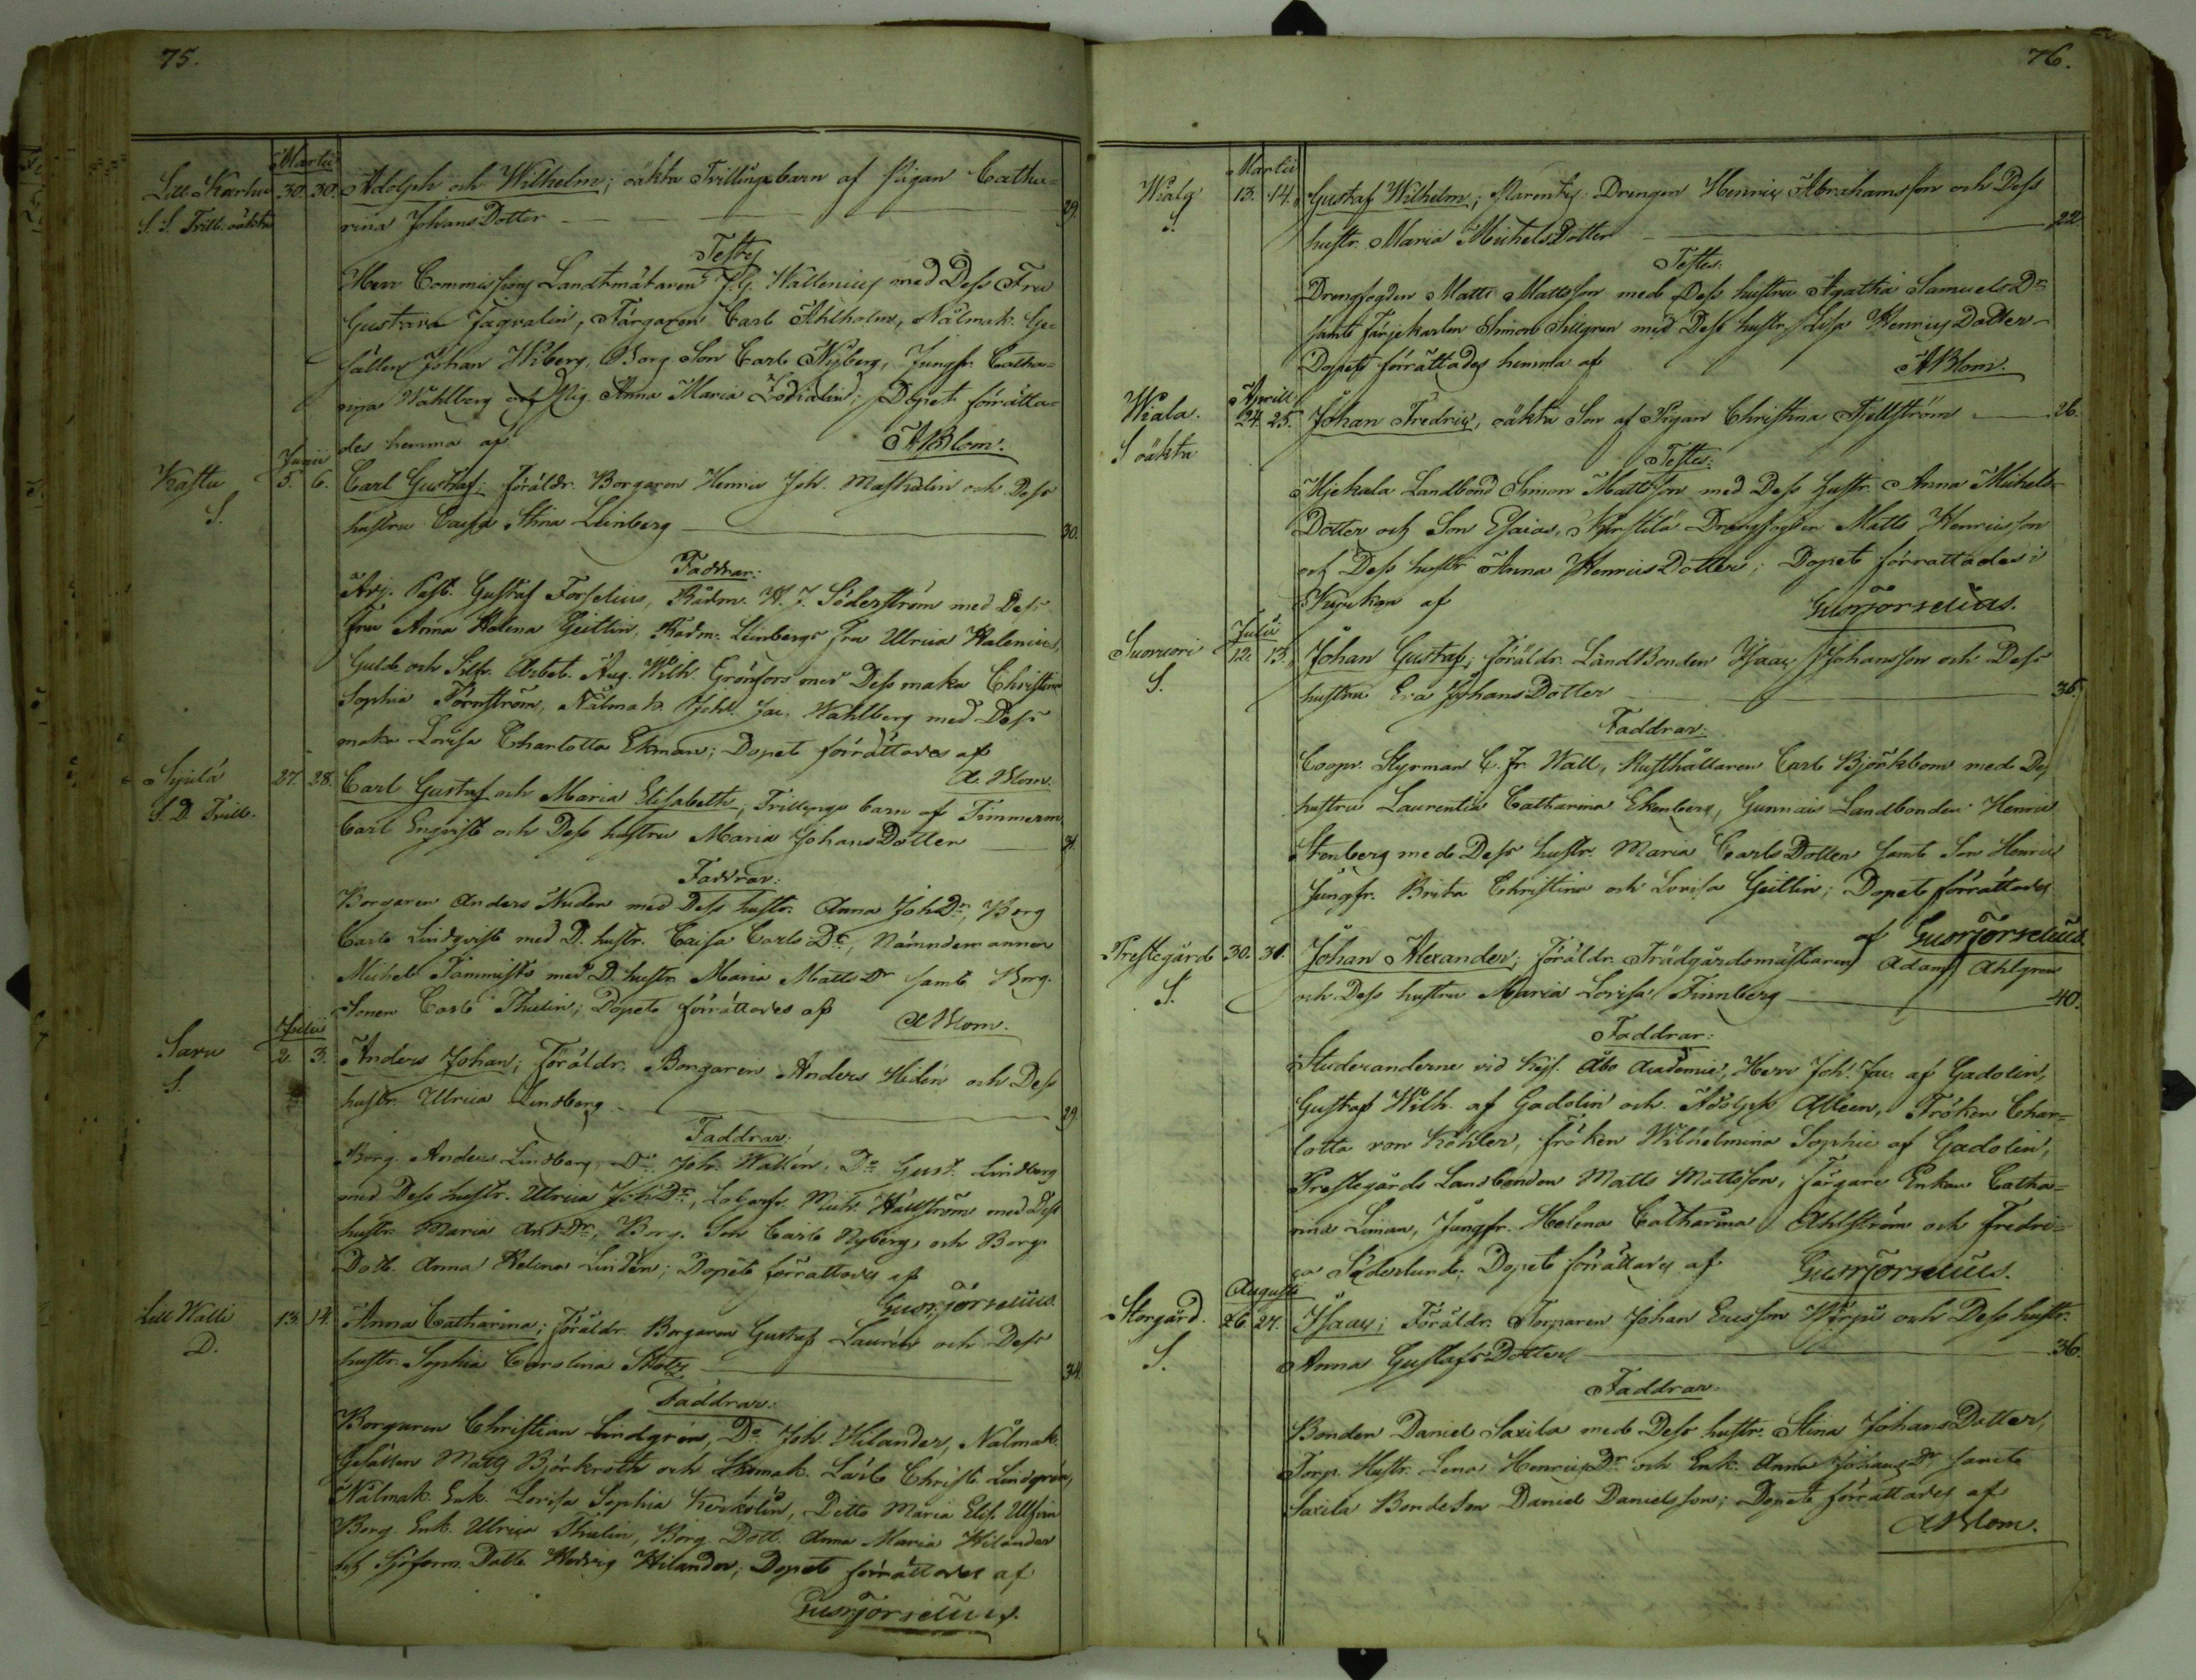 75.
Martii
Lill Karhu 30. 30. Adolph och Wilhelm; oäkta Tvillingebarn af Pigan Catha=
S. S. Tvill. oäkta rina JohansDotter 29.
Testes
Herr Commissions Landtmätaren J. G. Wallenius med Dess Fru
Gustava Fagvalin, Färgaren Carl Ahlholm, Nålmak. Ge-
sällen Johan Wiberg, Borg. Son Carl Nyberg, Jungfr. Catha=
rina Wahlberg och Pig. Anna Maria; Dopet förrätta=
des hemma af ABlom.
Junii
Kastu 5. 6. Carl Gustaf; föräldr. Borgaren Henric Joh. Maskulin och Dess
S. hustru Caisa Stina Leinberg 30.
Faddrar:
Adj. Past. Gustaf Forselius, Rådm. W. J. Söderström med Dess
Fru Anna Helena Geitlin, Rådm. Leinbergs Fru Ulrica Walenius,
Guld och Silfr. Arbet. Aug. Wilh. Grönfors med Dess maka Christina
Sophia Törnström, Nålmak. Joh. Jac. Wahlberg med Dess
maka Lovisa Charlotta Ekman; Dopet förrättades af
A. Blom.
27. 28. Carl Gustaf och Maria Elisabeth; Tvillinge barn af Timmerm
S. D. Tvill. Carl Engvist och Dess hustru Maria JohansDotter 31.
Faddrar:
Borgaren Anders Widen med Dess hustr. Anna JohDr, Borg
Carl Lindqvist med D. hustr. Caisa Carls Dr, Nämndemannen
Michel Tammisto med D. hustr. Maria Matts Dr samt Borg.
Sonen Carl Thulin; Dopet förrättades af ABlom.
Julii
Saru 2. 3. Anders Johan; Föräldr. Borgaren Anders Widén och Dess
S. hustr. Ulrica Lindberg 29.
Faddrar:
Borg. Anders Lindberg, Do Joh. Wallén, Do Gust. Lindberg
med Dess hustr. Ulrica JohDr, Mich. Hällström med Dess
hustr. Maria Dr, Borg. Son Carl Nyberg, och Borg.
Dott. Anna Helena Lindén; Dopet förrättades af
GusForselius.
Lill Walli 13. 14. Anna Catharina; Föräldr. Borgaren Gustaf Laurén och Dess
D. hustr. Sophia Carolina 34.
Faddrar:
Borgaren Christian Lindgrén, Do Joh. Wilander, Nålmak.
Gesällen Matts Björkroth och Skomak. Lärl. Christ. Lindgrén,
Nålmak. Enk. Lovisa Sophia, Ditto Maria Elis.
Borg. Enk. Ulrica Thulin, Borg. Dott. Anna Maria Wilander
och Dott. Hedvig Wilander; Dopet förrättades af
GusForselius.
76.
Martii
Wiala 13. 14. Gustaf Wilhelm; Parentes: Drengen Henric Abrahamsson och Dess
S. hustr. Maria MichelsDotter 22.
Testes:
Drengfogden Matts Mattsson med Dess hustru Agatha Samuels Dr
samt Färjekarlen Simon Sillgren med Dess hustr. Lisa Henrics Dotter
Dopet förrättades hemma af ABlom.
Aprill
Wiala. 24. 25. Johan Fredric, oäkta Son af Pigan Christina Fjellström 26.
S oäkta
Testes:
Landbond Simon Mattsson med Dess hustr. Anna Michels-
Dotter och Son Esaias, Drengfogden Matts Henricsson
och Dess hustr Anna HenricsDotter; Dopet förrättades i
Kyrkan af GusForselius.
Julii
Suorvori 12. 13. Johan Gustaf; föräldr. LandBonden Isaac Johansson och Dess
S. hustru Eva JohansDotter 36.
Faddrar:
Coopv. Styrman C. Fr. Wall, Rusthållaren Carl Björkbom med Dess
hustru Laurentia Catharina Ekenberg, Gunnais Landbonden Henric
Stenberg med Dess hustr. Maria CarlsDotter samt Son Henric
Jungfr. Brita Christina och Lovisa Geitlin; Dopet förrättades
af GusForselius
Prestegård 30. 31. Johan Alexander; föräldr. Trädgårdsmästaren Adam Ahlgren
S. och Dess hustru Maria Lovisa Finnberg 40.
Faddrar:
Studeranderne vid Kejs. Åbo Academie, Herr Joh. Jac. af Gadolin,
Gustaf Wilh. af Gadolin och Adolph Alleen, Fröken Char=
lotta von Köhler, fröken Wilhelmina Sophie af Gadolin,
Prestegårds Landbonden Matts Mattsson, Färgare Enkan Catha=
rina Liman, Jungfr. Helena Catharina Ahlström och Fredri=
ca Söderlund; Dopet förrättades af GusForselius.
Augusti
Storgård. 26 27. Isaac; Föräldr. Torparen Johan Ericsson och Dess hustr.
S. Anna GustafsDotter 36.
Faddrar:
Bonden Daniel Saxila med Dess hustr. Stina JohansDotter,
Torp. Hustr. Lena HenricsDr och Enk. Anna Johans Dr samt
Saxila BondeSon Daniel Danielsson; Dopet förrättades af
ABlom.